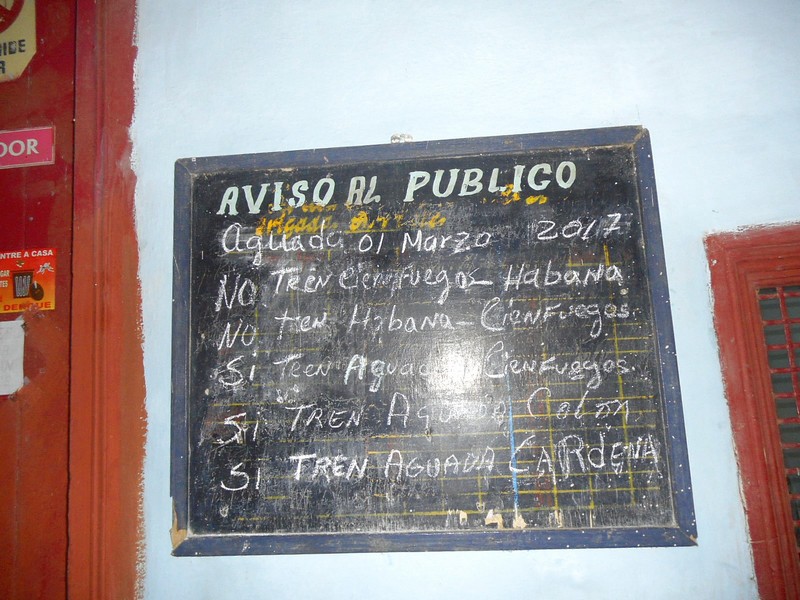 DOR
AVISO AL PUBLICO
Aguada 01 Marzo 2017
NO Tren Cienfuegos - Habana
NO tren Habana - Cienfuegos.
Si Tren Aguada Cienfuegos.
Si TREN AGUADA COLON
Si TREN AGUADA CARDENA
NTRE A CASA
DENGUE